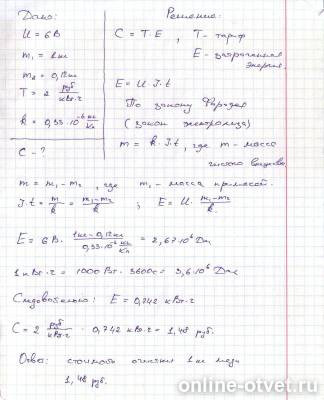 Дано:
U = 6 В
m₁ = 1 кг
m₂ = 0,12 кг
T = 2 руб/кВт·ч
k = 0,33·10⁻⁶ кг/Кл
C - ?
Решение:
C = T·E, T - тариф
E - затраченная
энергия.
E = U·I·t
По закону Фарадея
(закон электролиза)
m = k·I·t, где m - масса
чистого вещества.
m = m₁-m₂, где m₁ - масса примесей.
I·t = m/k = m₁-m₂/k ; E = U· m₁-m₂/k.
E = 6 В· 1кг-0,12кг/0,33·10⁻⁶ кг/Кл = 2,67·10⁶ Дж
1 кВт·ч = 1000 Вт·3600с = 3,6·10⁶ Дж
Следовательно: E = 0,742 кВт·ч
C = 2 руб/кВт·ч · 0,742 кВт·ч = 1,48 руб.
Ответ: стоимость очистки 1 кг меди
1,48 руб.
online-otvet.ru